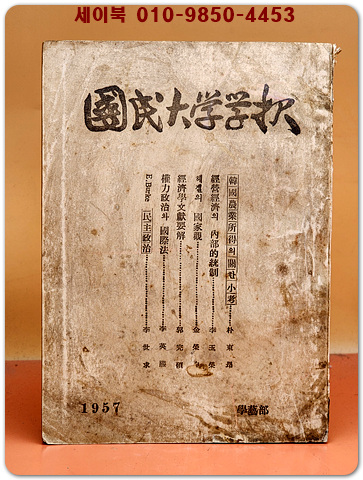 세이북 010-9850-4453
國民大学学報
韓國農業所得의 關한 小考 朴東昂
經營經濟의 內部的統制 李玉榮
헤겔의 國家觀 金榮
經濟學文獻要解 郭
權力政治와 國際法 李英
E. Burke 民主政治 李世求
1957
學藝部